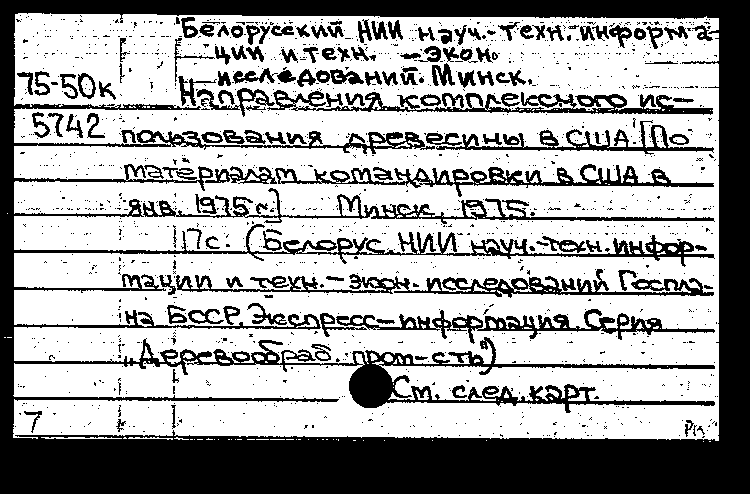 Белорусский НИИ науч.-техн. информа-
ции и техн. -экон.
исследований. Минск.
75-50к
Направления комплексного ис-
5742
пользования древесины в США [По
материалам командировки в США в
янв. 1975 г.] Минск, 1975.
17с. (Белорус. НИИ науч.-техн. инфор-
мации и техн.-экон. исследований Госпла-
на БССР. Экспресс-информация. Серия
„Деревообраб. пром-сть")
См. след. карт.
7